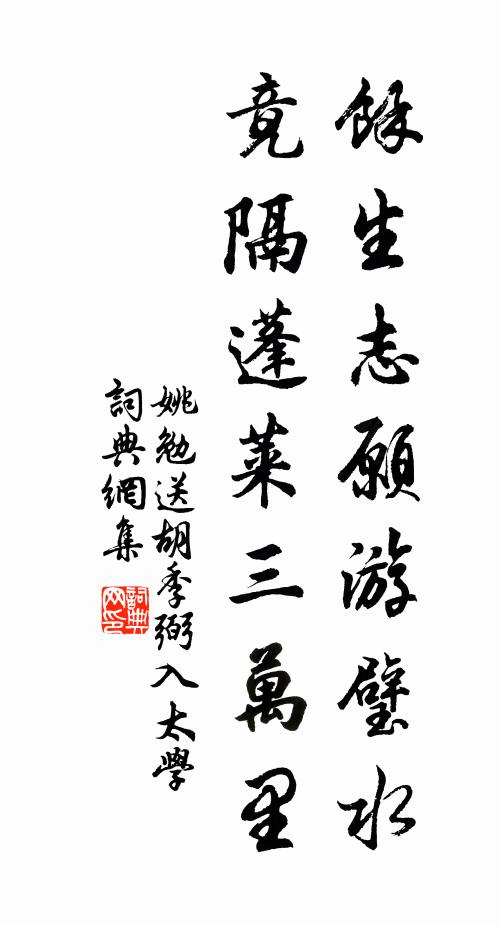 餘生志願游璧水
竟隔蓬萊三萬里
姚勉送胡季弼入太學
詞典網集
詞典网印